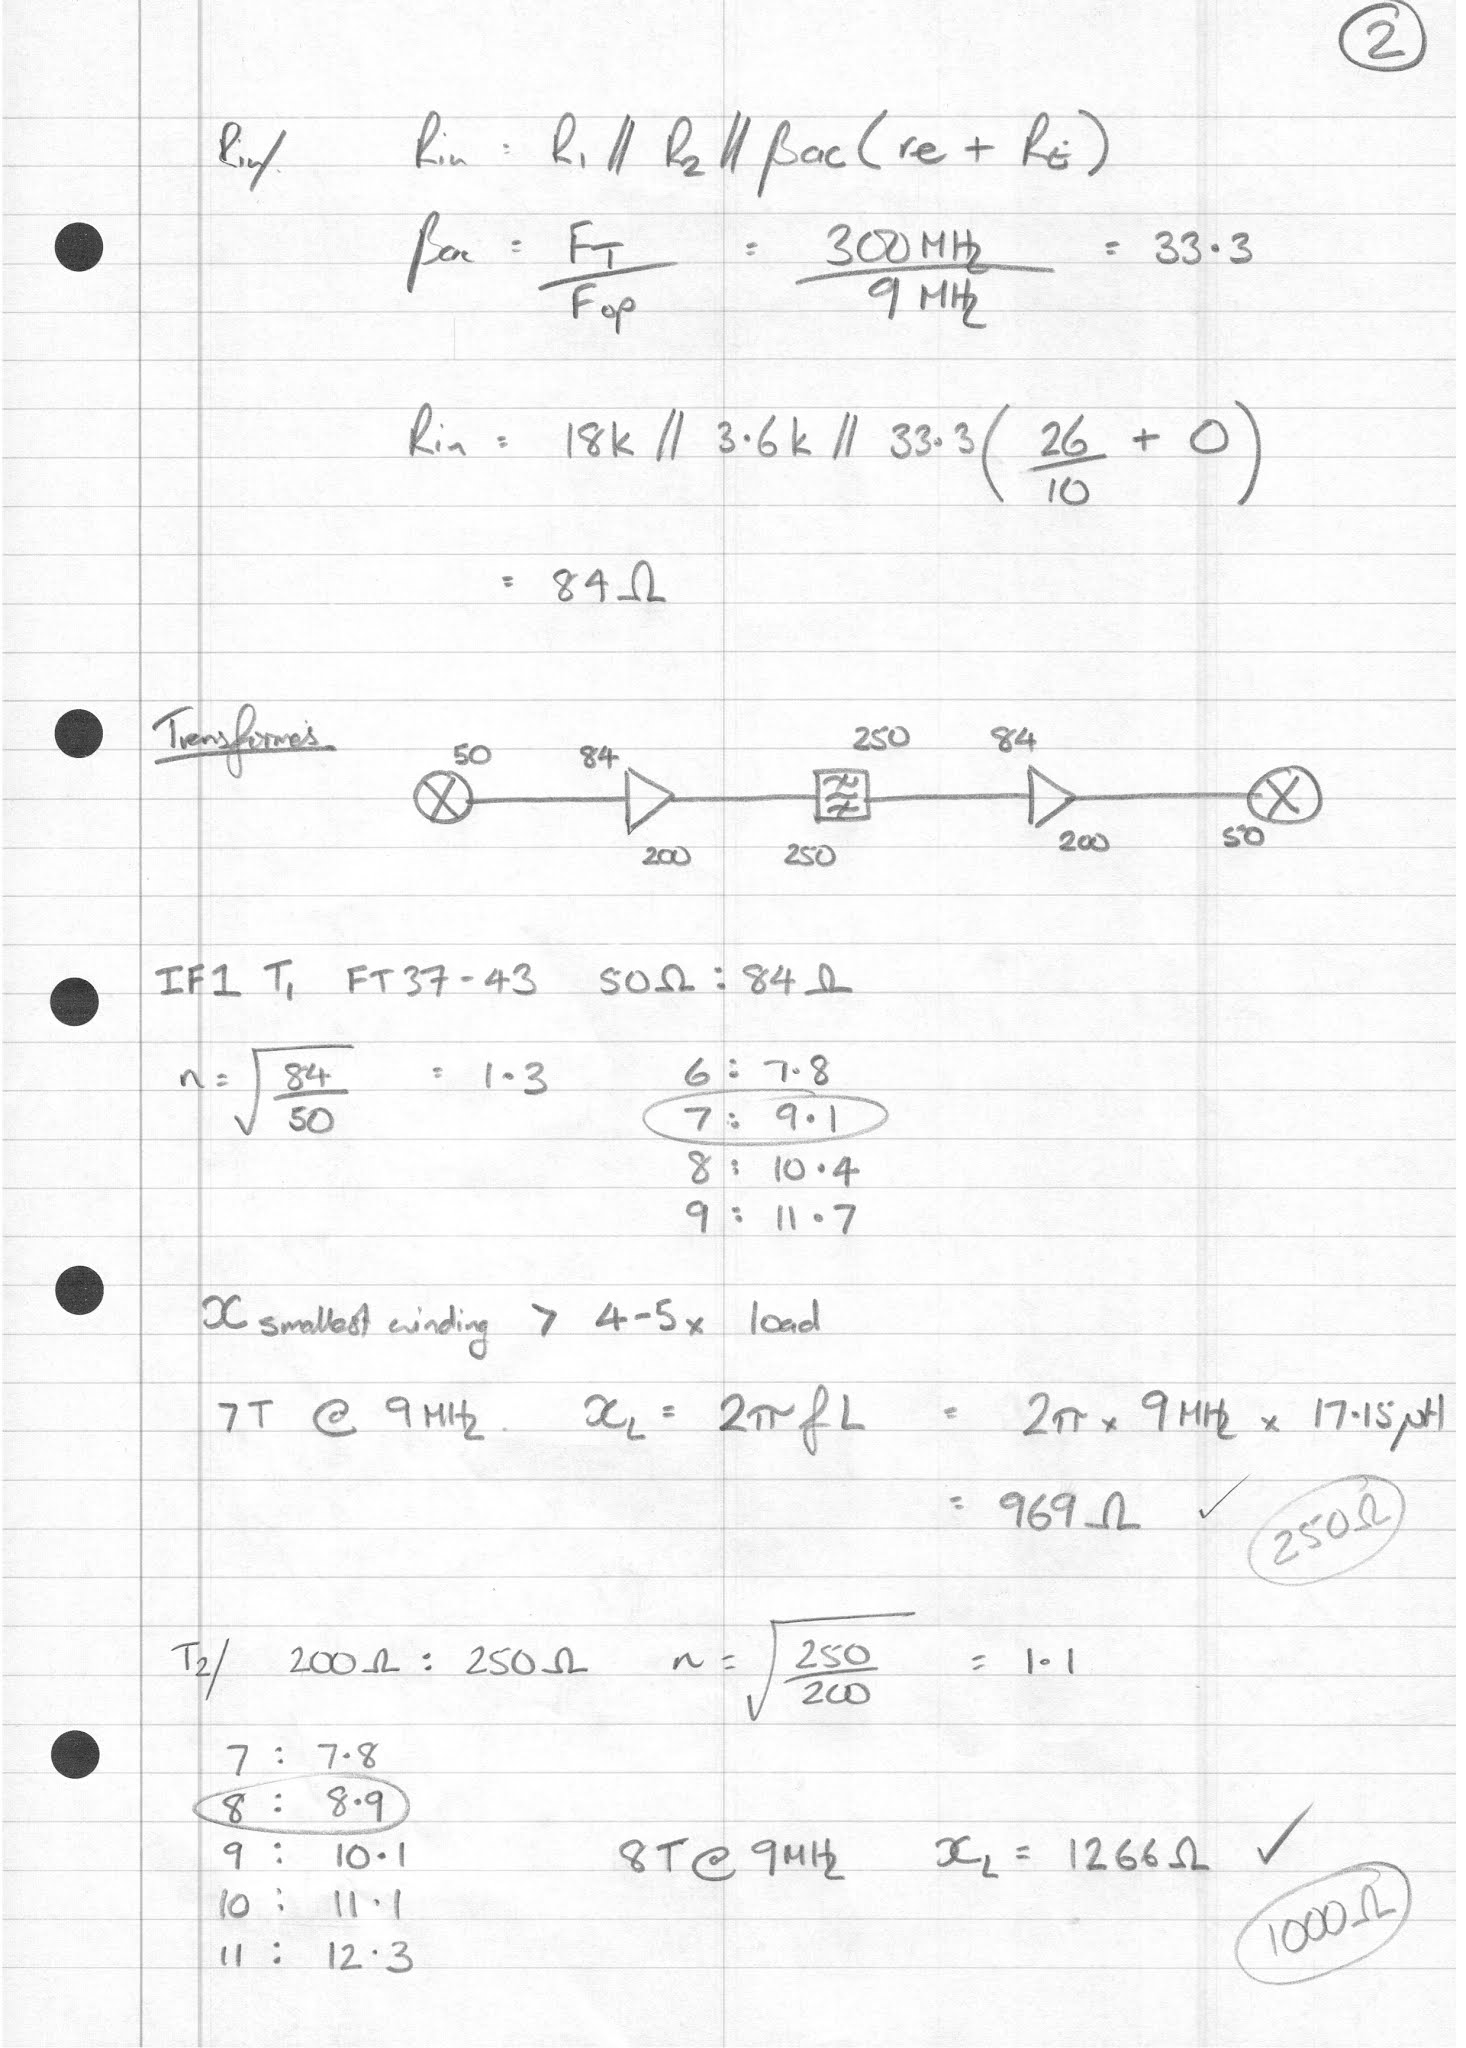 2
Rin/ Rin = R1 // R2 // βac (re + RE)
βac = FT / Fop = 300MHz / 9 MHz = 33.3
Rin = 18k // 3.6k // 33.3 ( 26 / 10 + 0 )
= 84Ω
Transformers
50 84 250 84
200 250 200 50
IF1 T1 FT37-43 50Ω : 84Ω
n = √ 84 / 50 = 1.3
6 : 7.8
7 : 9.1
8 : 10.4
9 : 11.7
X smallest winding > 4-5x load
7T @ 9MHz. XL = 2πfL = 2π x 9MHz x 17.15μH
= 969Ω ✓ 250Ω
T2/ 200Ω : 250Ω n = √ 250 / 200 = 1.1
7 : 7.8
8 : 8.9
9 : 10.1 8T @ 9MHz XL = 1266Ω ✓
10 : 11.1 1000Ω
11 : 12.3